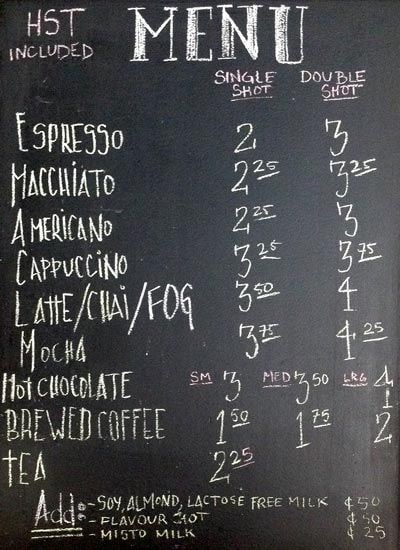 HST INCLUDED
MENU
SINGLE SHOT DOUBLE SHOT
ESPRESSO 2 3
MACCHIATO 2 25 3 25
AMERICANO 2 25 3
CAPPUCCINO 3 25 3 75
LATTE/CHAI/FOG 3 50 4
MOCHA 3 75 4 25
HOT CHOCOLATE SM 3 MED 3 50 LRG 4
BREWED COFFEE 1 50 1 75 2
TEA 2 25
Add: - SOY, ALMOND, LACTOSE FREE MILK ¢50
- FLAVOUR SHOT ¢50
- MISTO MILK ¢25